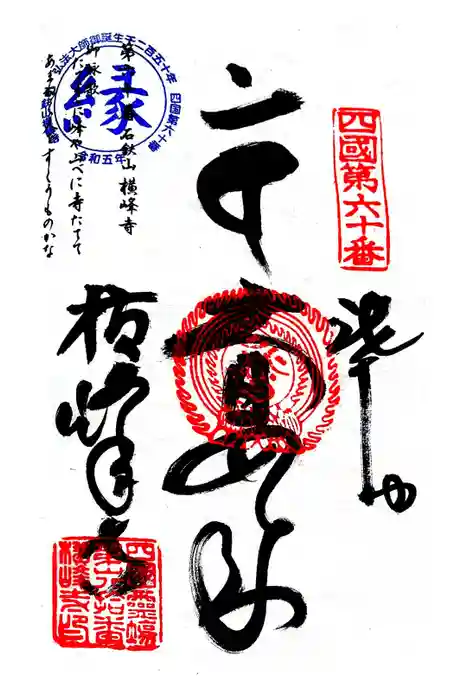 四國第六十番
奉
大日如来
横峰寺
弘法大師御誕生千二百五十年 四国第六十番
縁
令和五年
石鉄山 横峰寺
御詠歌
たてよこに峰や山べに寺たてて
あまねく すくうものかな
四國霊場
第六拾番
横峰寺印